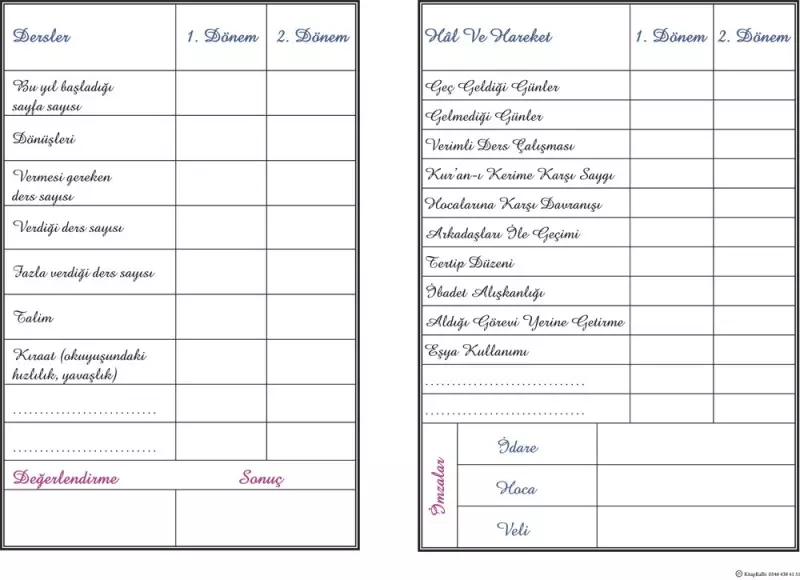 Dersler 1. Dönem 2. Dönem
Bu yıl başladığı
sayfa sayısı
Dönüşleri
Vermesi gereken
ders sayısı
Verdiği ders sayısı
Fazla verdiği ders sayısı
Talim
Kıraat (okuyuşundaki
hızlılık, yavaşlık)
..........................
..........................
Değerlendirme Sonuç
Hâl Ve Hareket 1. Dönem 2. Dönem
Geç Geldiği Günler
Gelmediği Günler
Verimli Ders Çalışması
Kur'an-ı Kerime Karşı Saygı
Hocalarına Karşı Davranışı
Arkadaşları İle Geçimi
Tertip Düzeni
İbadet Alışkanlığı
Aldığı Görevi Yerine Getirme
Eşya Kullanımı
.............................
.............................
İmzalar
İdare
Hoca
Veli